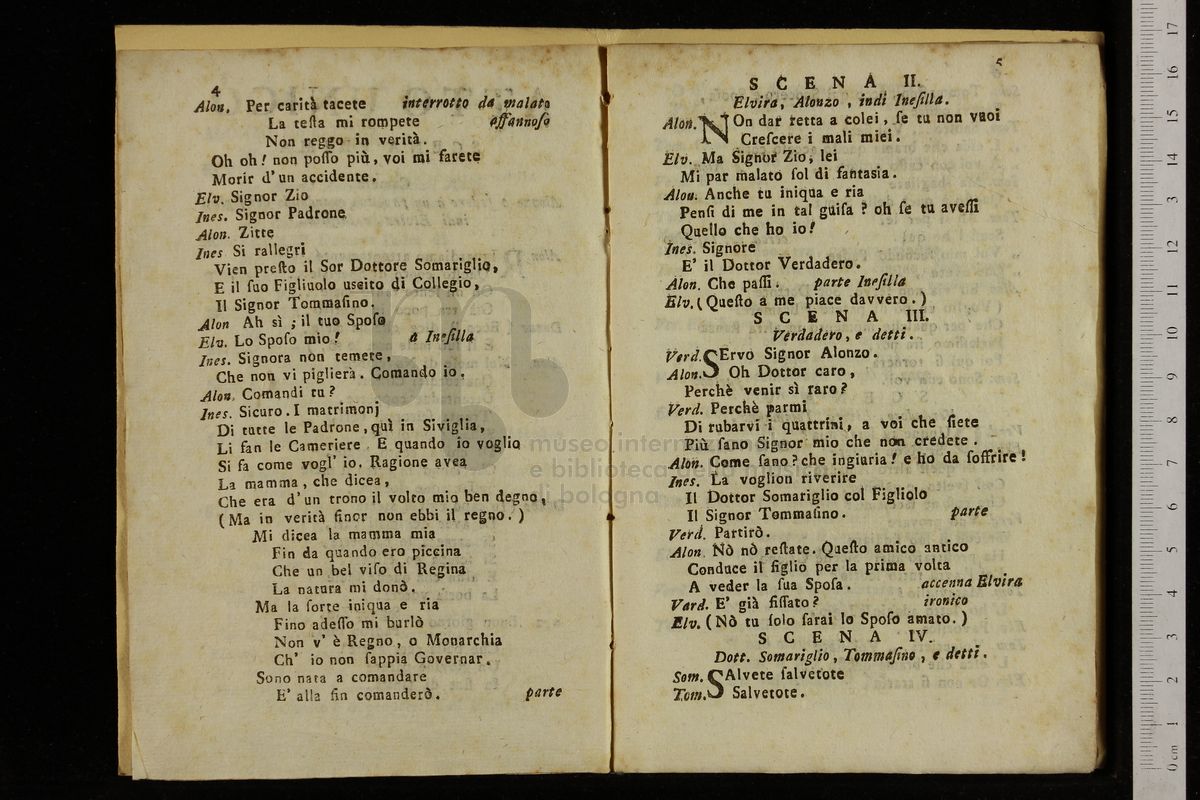 4
Alon. Per carità tacete interrotto da malato
La testa mi rompete affannoso
Non reggo in verità.
Oh oh! non posso più, voi mi farete
Morir d'un accidente.
Elv. Signor Zio
Ines. Signor Padrone
Alon. Zitte
Ines Si rallegri
Vien presto il Sor Dottore Somariglio,
E il suo Figliuolo uscito di Collegio,
Il Signor Tommasino.
Alon Ah sì ; il tuo Sposo
Elv. Lo Sposo mio! a Inesilla
Ines. Signora non temete,
Che non vi piglierà. Comando io.
Alon. Comandi tu?
Ines. Sicuro. I matrimonj
Di tutte le Padrone, quì in Siviglia,
Li fan le Cameriere E quando io voglio
Si fa come vogl' io. Ragione avea
La mamma, che dicea,
Che era d'un trono il volto mio ben degno,
(Ma in verità finor non ebbi il regno.)
Mi dicea la mamma mia
Fin da quando ero piccina
Che un bel viso di Regina
La natura mi donò.
Ma la sorte iniqua e ria
Fino adesso mi burlò
Non v' è Regno, o Monarchia
Ch' io non sappia Governar.
Sono nata a comandare
E' alla fin comanderò. parte
5
SCENA II.
Elvira, Alonzo, indi Inesilla.
Alon. NOn dar retta a colei, se tu non vuoi
Crescere i mali miei.
Elv. Ma Signor Zio, lei
Mi par malato sol di fantasia.
Alon. Anche tu iniqua e ria
Pensi di me in tal guisa? oh se tu avessi
Quello che ho io!
Ines. Signore
E' il Dottor Verdadero.
Alon. Che passi. parte Inesilla
Elv. (Questo a me piace davvero.)
SCENA III.
Verdadero, e detti.
Verd. SErvo Signor Alonzo.
Alon. Oh Dottor caro,
Perchè venir sì raro?
Verd. Perchè parmi
Di rubarvi i quattrini, a voi che siete
Più sano Signor mio che non credete.
Alon. Come sano? che ingiuria! e ho da soffrire!
Ines. La voglion riverire
Il Dottor Somariglio col Figliolo
Il Signor Tommasino. parte
Verd. Partirò.
Alon. Nò nò restate. Questo amico antico
Conduce il figlio per la prima volta
A veder la sua Sposa. accenna Elvira
Vard. E' già fissato? ironico
Elv. (Nò tu solo sarai lo Sposo amato.)
SCENA IV.
Dott. Somariglio, Tommasino, e detti.
Som. SAlvete salvetote
Tom. Salvetote.